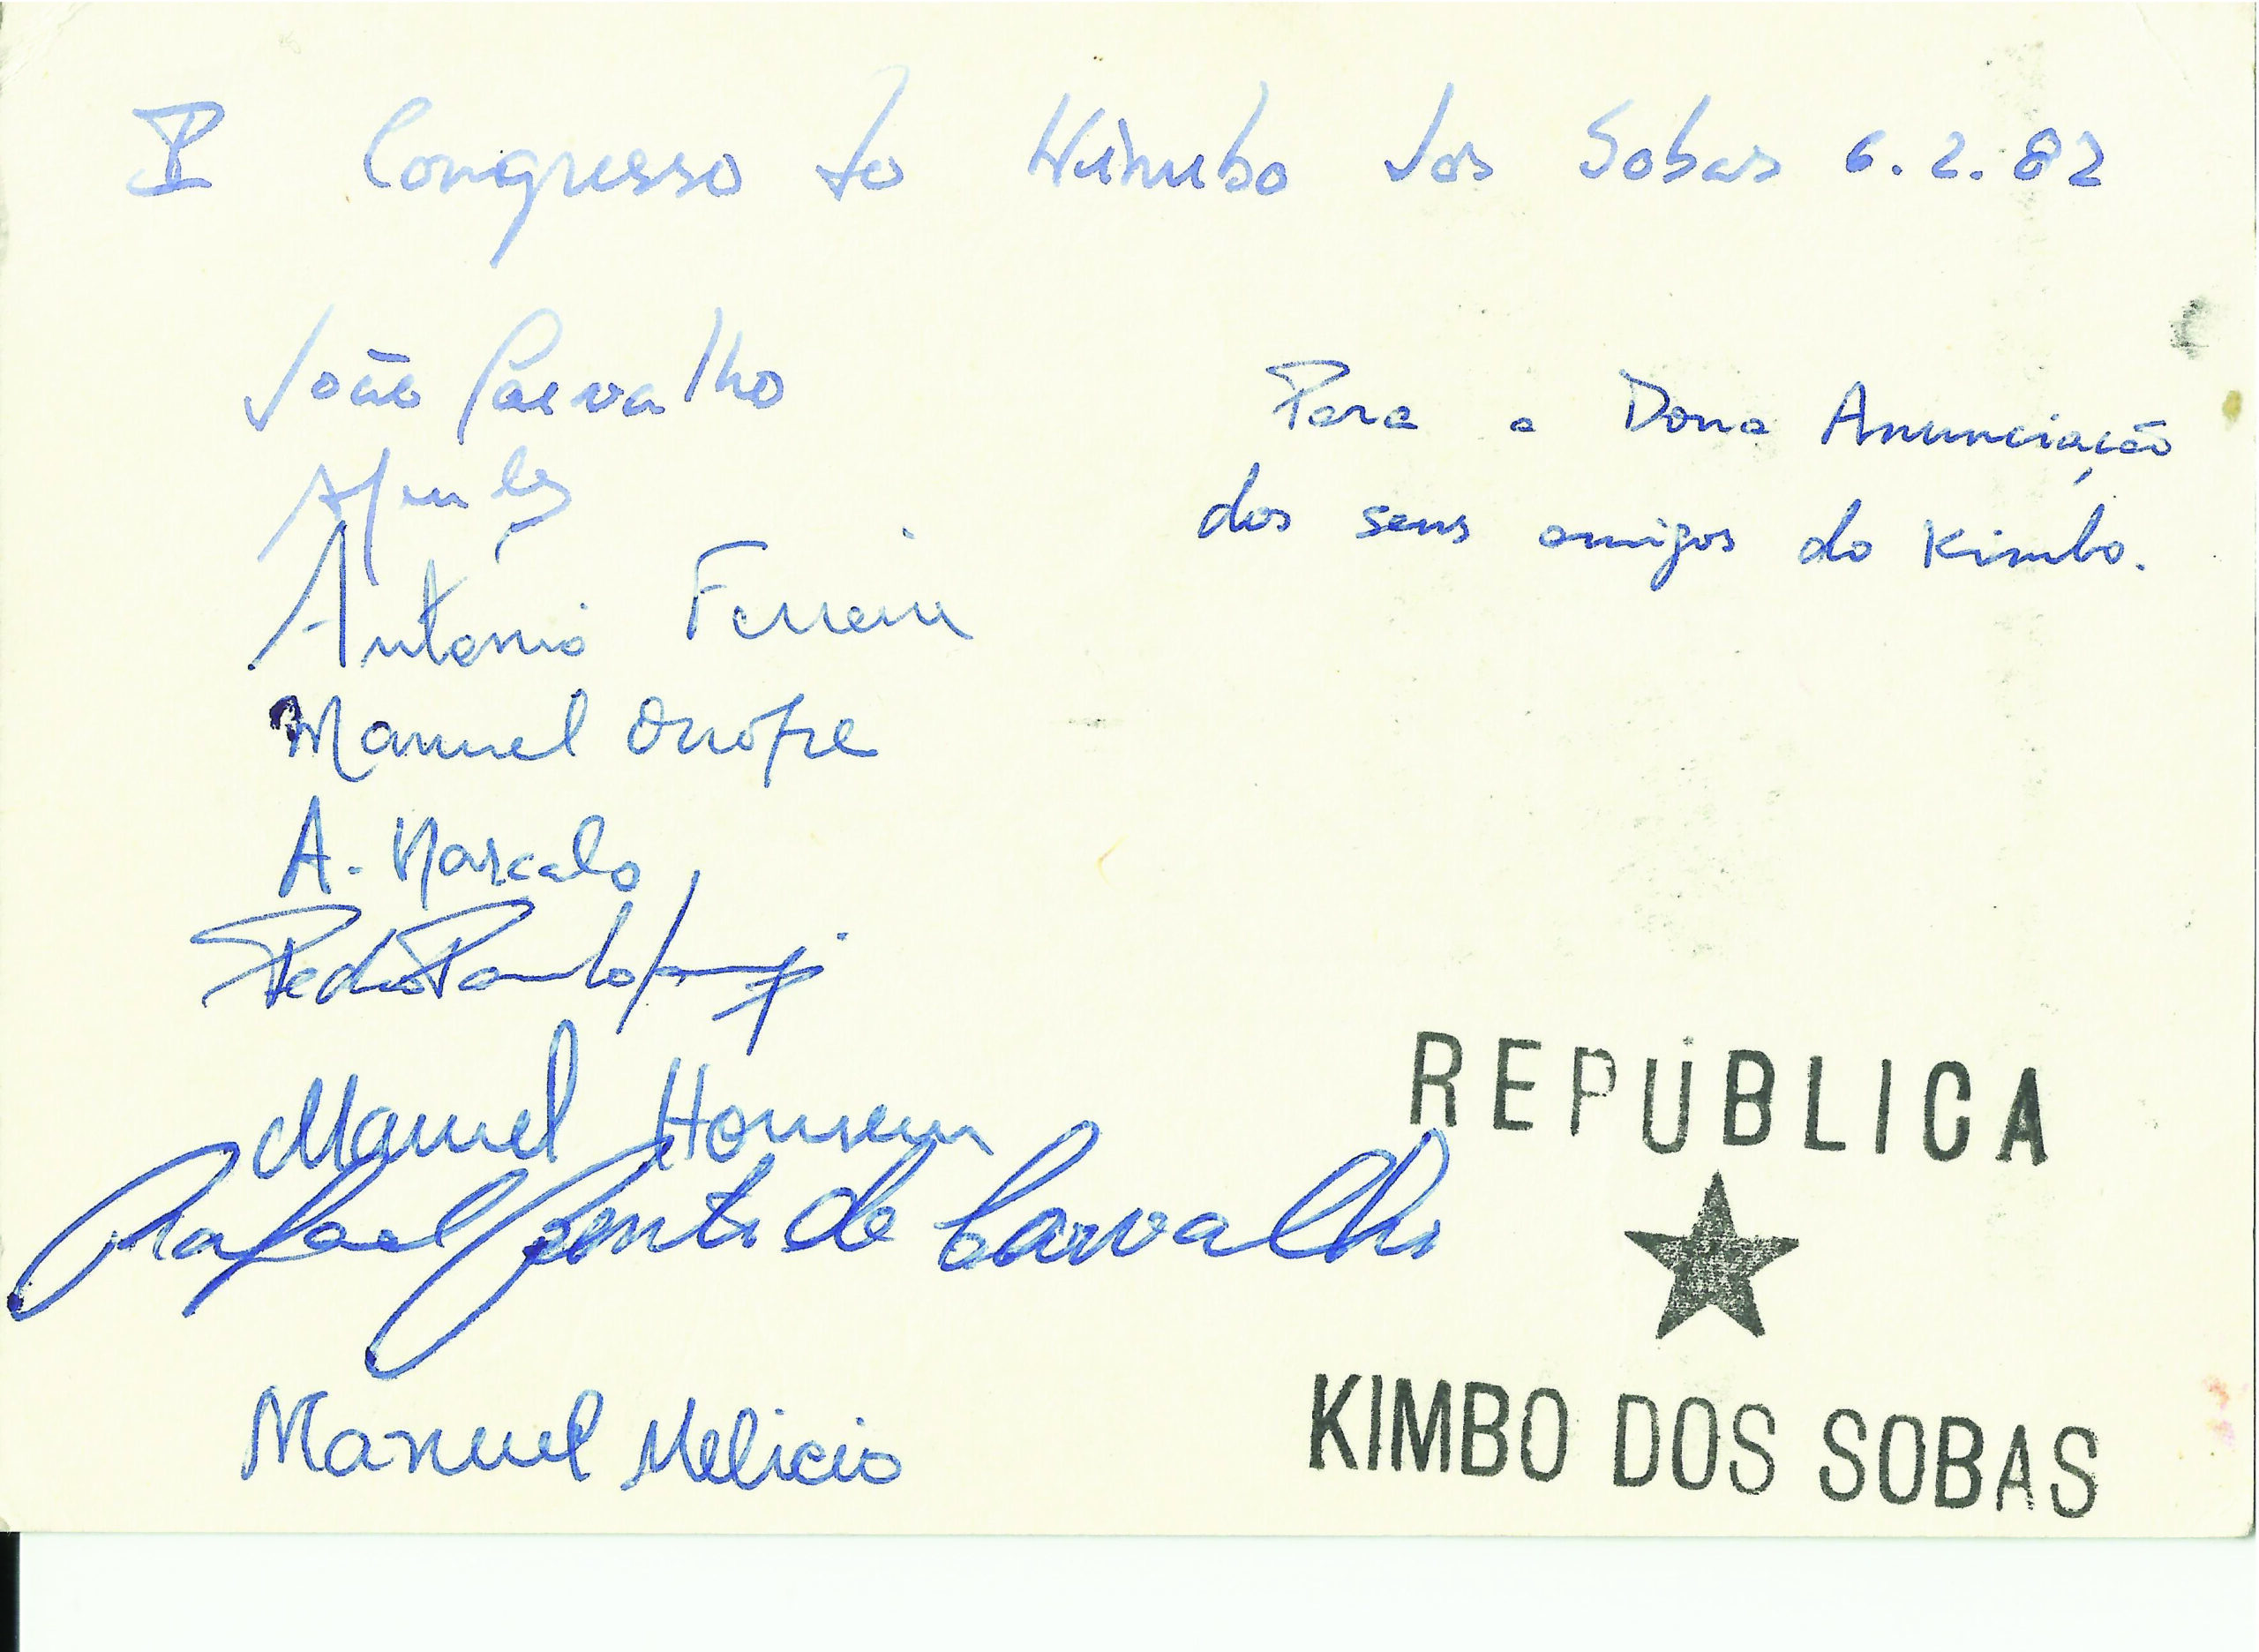 I Congresso do Kimbo dos Sobas 6.2.82
João Carvalho
Para a Dona Anunciação
dos seus amigos do Kimbo.
Antonio Ferreira
Manuel Onofre
A. Marcelo
Pedro Paulo
Manuel Homem
Rafael de Carvalho
Manuel Melicio
REPÚBLICA
KIMBO DOS SOBAS